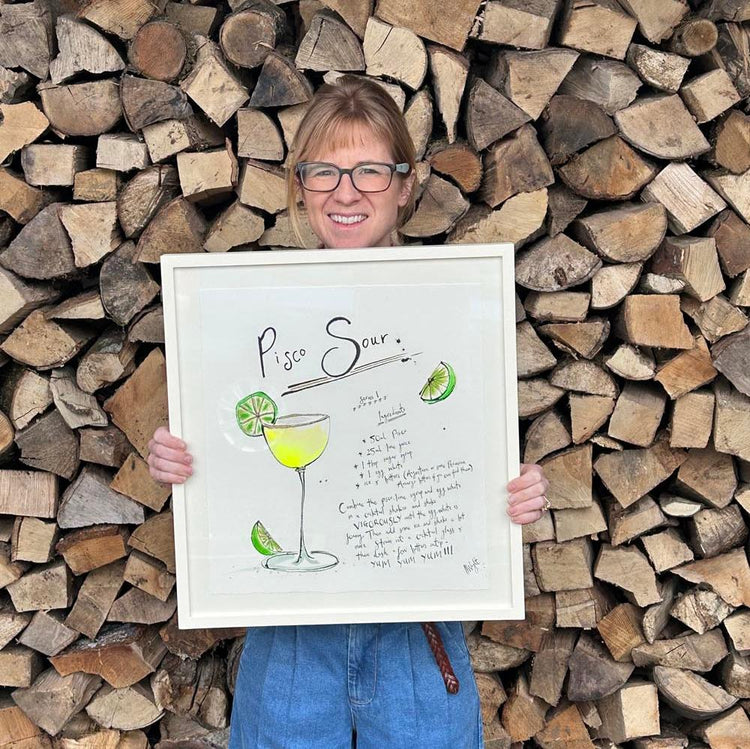 Pisco Sour
Serves 1
Ingredients
* 50ml Pisco
* 25ml lime juice
* 1 tbsp sugar syrup
* 1 egg white
ice & bitters (Angostura or some Peruvian
Amargo bitters if you can find them)
Combine the pisco, lime, syrup and egg white
in a cocktail shaker and shake
VIGOROUSLY until the egg white is
foamy. Then add some ice and shake a bit
more. Strain into a cocktail glass &
then dash a few bitters on top.
YUM YUM YUM!!!